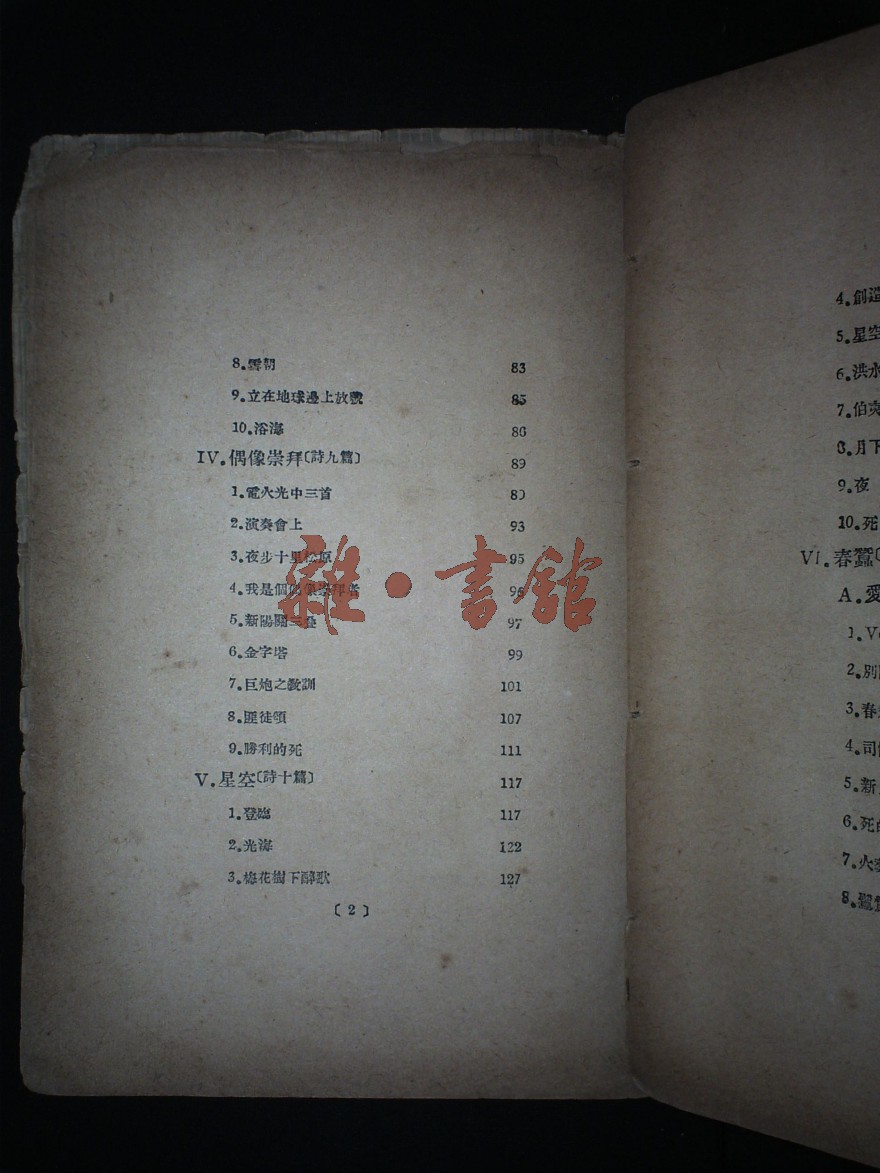 8.雪朝 83
9.立在地球邊上放號 85
10.浴海 86
IV.偶像崇拜〔詩九篇〕 89
1.電火光中三首 89
2.演奏會上 93
3.夜步十里松原 95
4.我是個偶像崇拜者 96
5.新陽關三疊 97
6.金字塔 99
7.巨炮之敎訓 101
8.匪徒頌 107
9.勝利的死 111
V.星空〔詩十篇〕 117
1.登臨 117
2.光海 122
3.梅花樹下醉歌 127
〔2〕
雜·書館
4.創造
5.星空
6.洪水
7.伯夷
8.月下
9.夜
10.死
VI.春蠶〔
A.愛
1.V
2.別
3.春
4.司
5.新
6.死的
7.火
8.